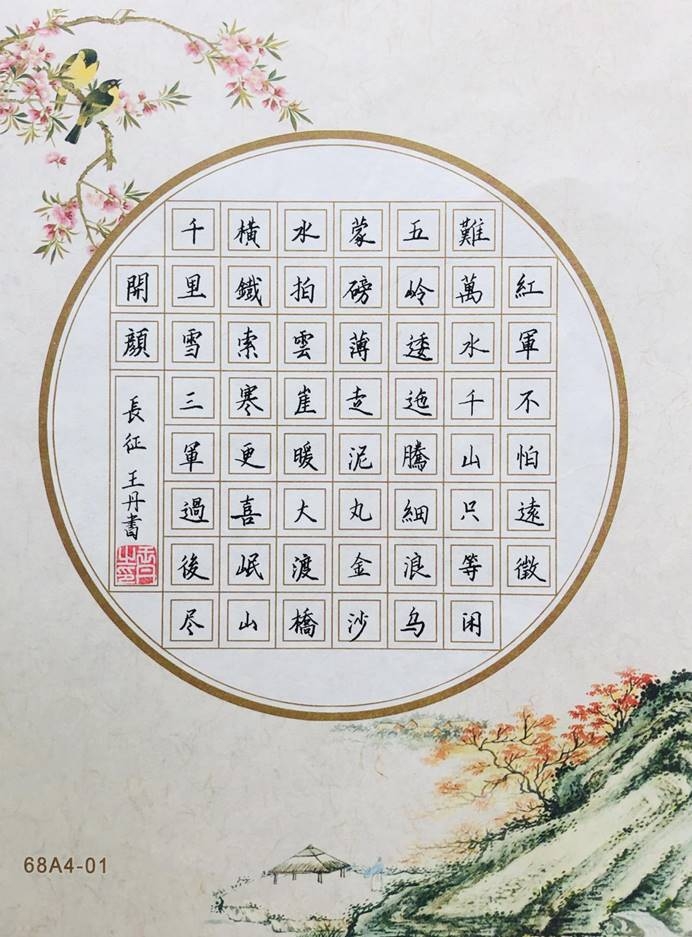 紅軍不怕遠徵
難萬水千山只等闲
五岭逶迤騰細浪乌
蒙磅薄走泥丸金沙
水拍雲崖暖大渡橋
橫鐵索寒更喜岷山
千里雪三軍過後尽
開顔
長征 王丹書
68A4-01